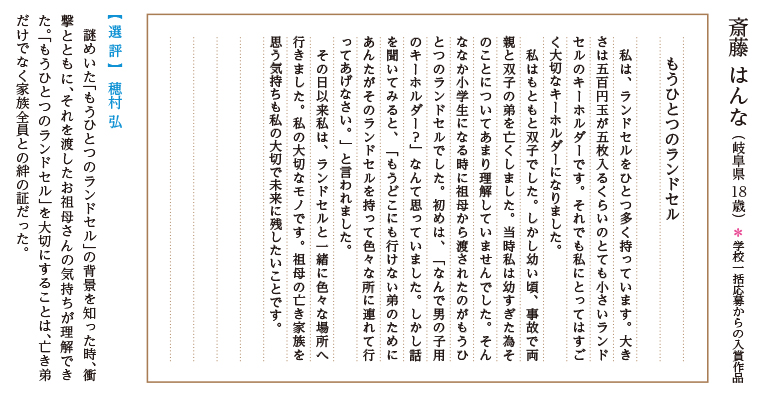 斎藤 はんな（岐阜県 18歳）＊学校一括応募からの入賞作品
もうひとつのランドセル
私は、ランドセルをひとつ多く持っています。大き
さは五百円玉が五枚入るくらいのとても小さいランド
セルのキーホルダーです。それでも私にとってはすご
く大切なキーホルダーになりました。
私はもともと双子でした。しかし幼い頃、事故で両
親と双子の弟を亡くしました。当時私は幼すぎた為そ
のことについてあまり理解していませんでした。そん
ななか小学生になる時に祖母から渡されたのがもうひ
とつのランドセルでした。初めは、「なんで男の子用
のキーホルダー？」なんて思っていました。しかし話
を聞いてみると、「もうどこにも行けない弟のために
あんたがそのランドセルを持って色々な所に連れて行
ってあげなさい。」と言われました。
その日以来私は、ランドセルと一緒に色々な場所へ
行きました。私の大切なモノです。祖母の亡き家族を
思う気持ちも私の大切で未来に残したいことです。
【選評】 穂村 弘
謎めいた「もうひとつのランドセル」の背景を知った時、衝
撃とともに、それを渡したお祖母さんの気持ちが理解でき
た。「もうひとつのランドセル」を大切にすることは、亡き弟
だけでなく家族全員との絆の証だった。